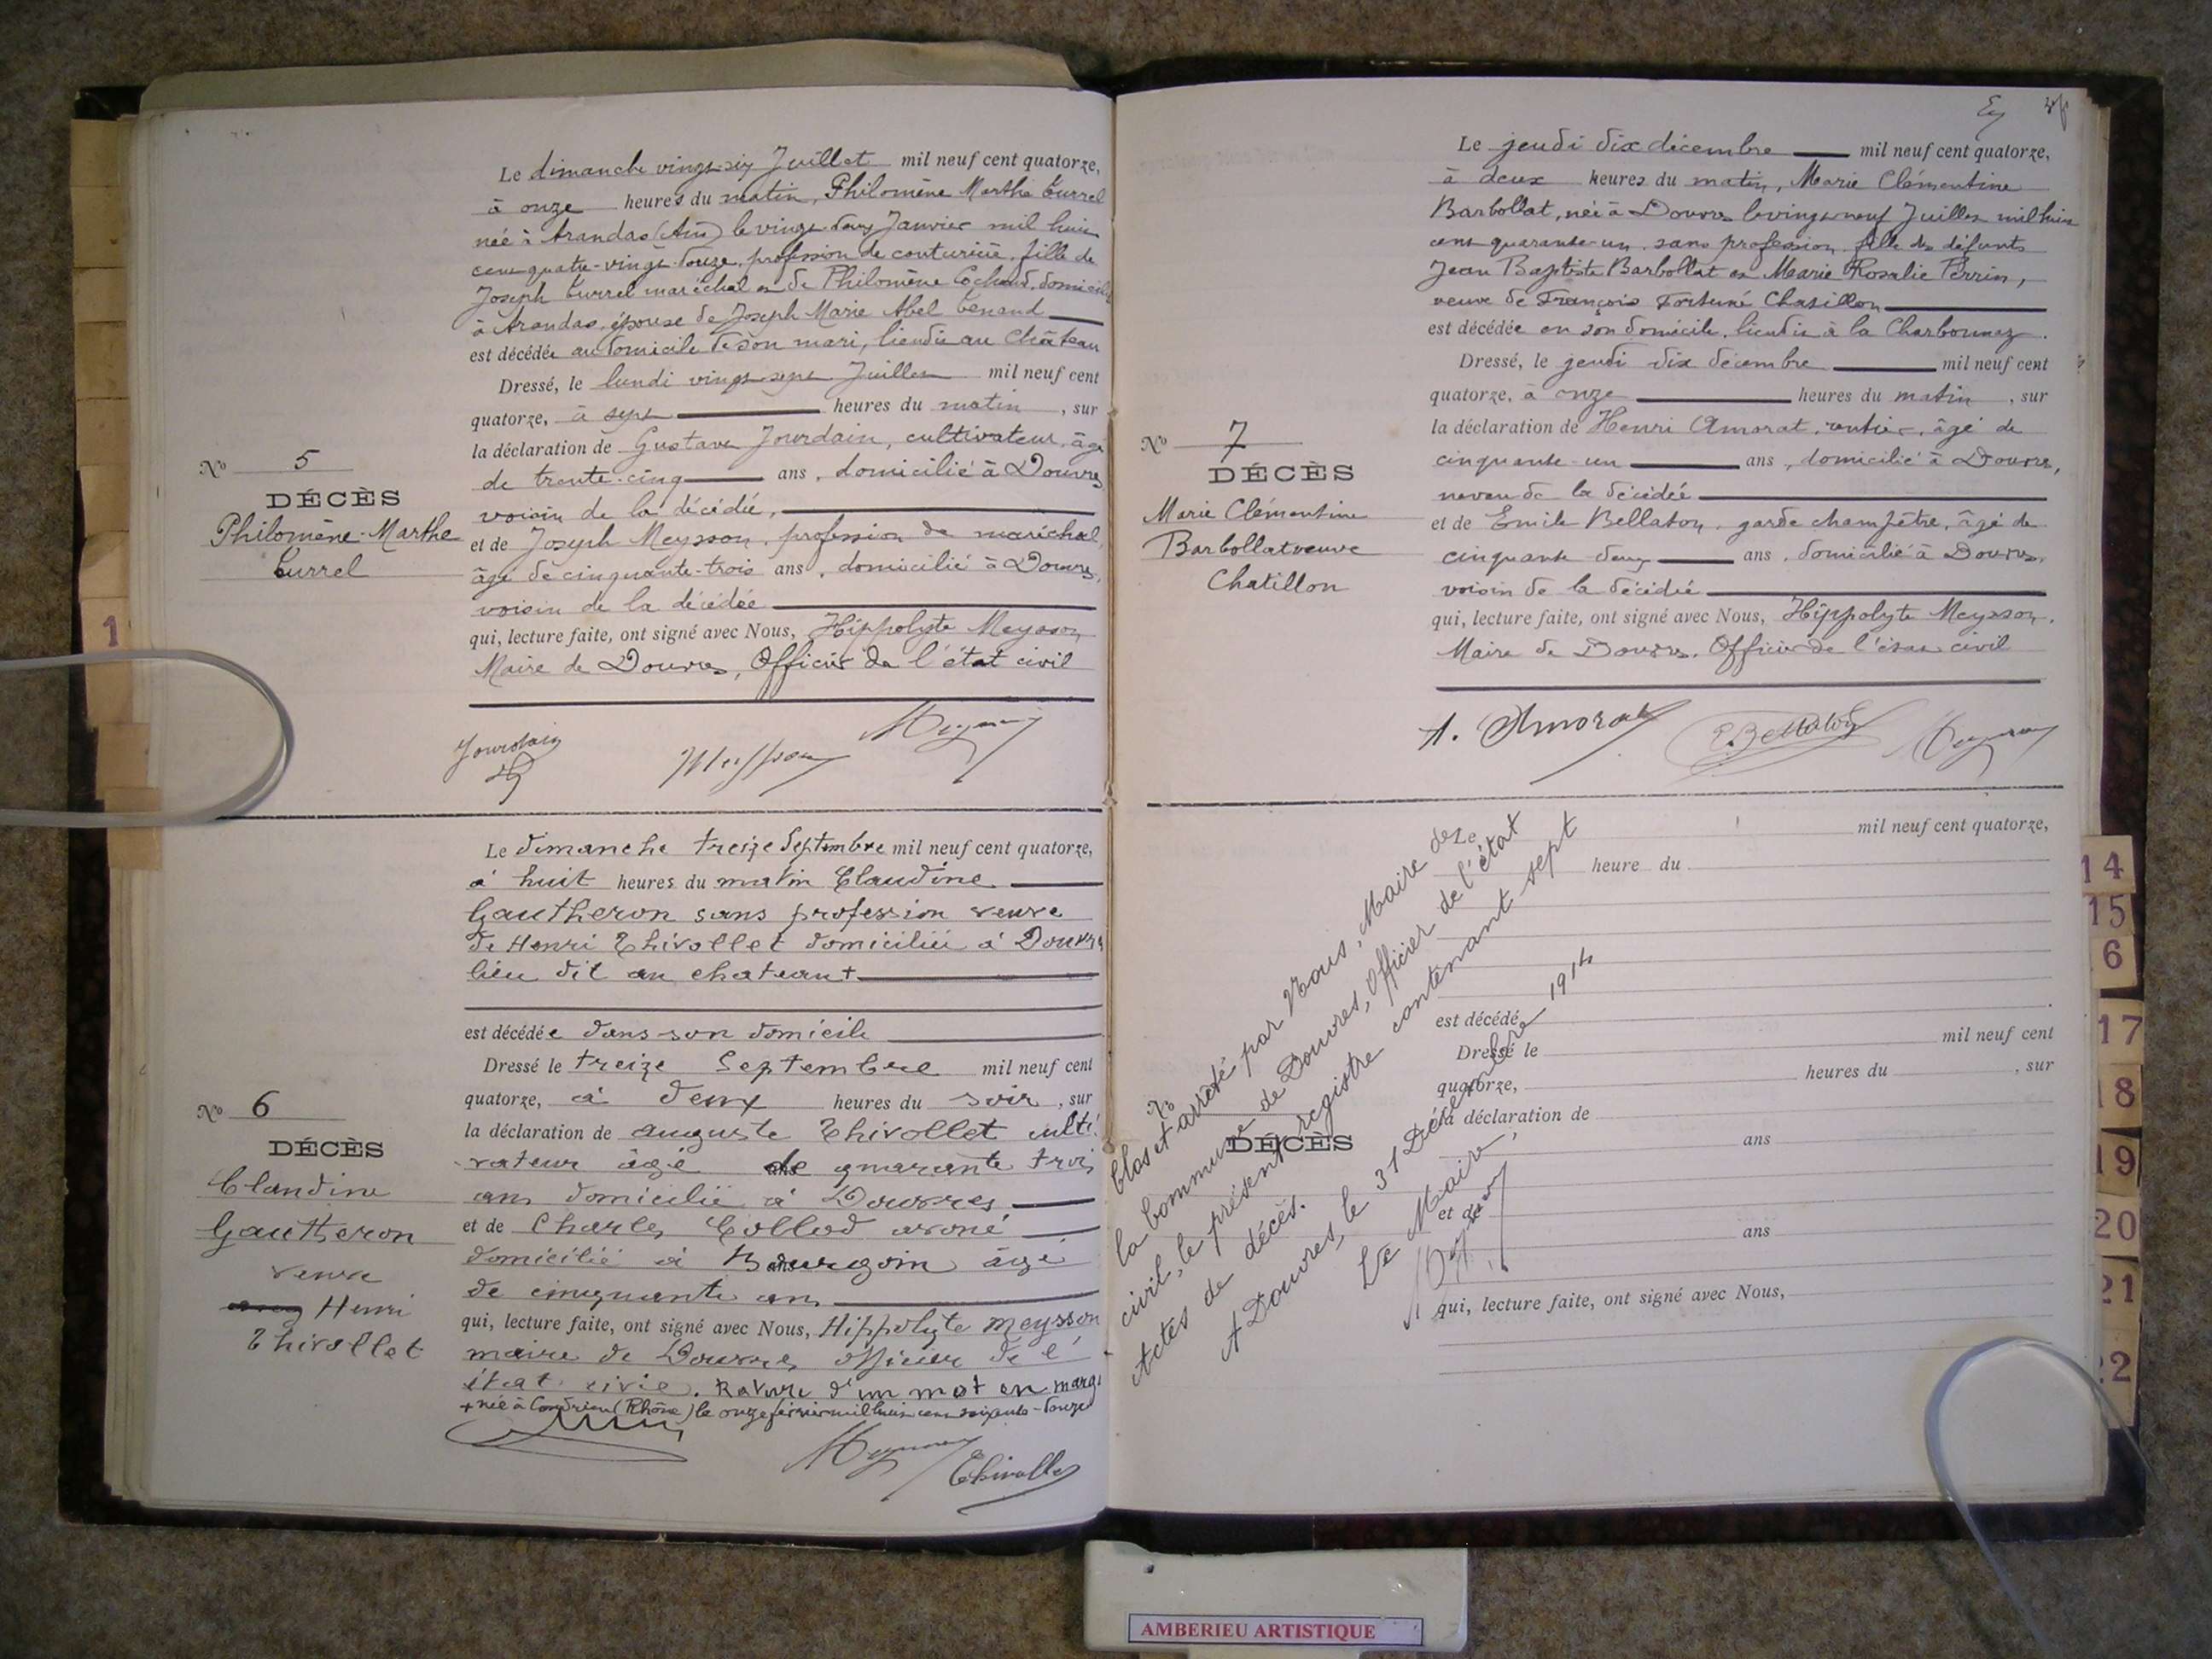 Le dimanche vingt-six Juillet mil neuf cent quatorze,
à onze heures du matin, Philomène Marthe Curral
née à Arandas (Ain) le vingt-deux Janvier mil huit
cent quatre-vingt-douze, profession de couturière, fille de
Joseph Currel maréchal et de Philomène Cochand, domiciliés
à Arandas, épouse de Joseph Marie Abel Benand
est décédée au domicile de son mari, lieudit au Château
Dressé, le lundi vingt-sept Juillet mil neuf cent
quatorze, à sept heures du matin, sur
la déclaration de Gustave Jourdain, cultivateur, âgé
de trente-cinq ans, domicilié à Douvres,
voisin de la décédée,
et de Joseph Meysson, profession de maréchal,
âgé de cinquante-trois ans, domicilié à Douvres,
voisin de la décédée
qui, lecture faite, ont signé avec Nous, Hippolyte Meysson
Maire de Douvres, Officier de l'état civil
Nº 5
DÉCÈS
Philomène-Marthe
Currel
Jourdain
Meysson
Le dimanche treize Septembre mil neuf cent quatorze,
à huit heures du matin Claudine
Gautheron sans profession veuve
de Henri Thivollet domiciliée à Douvres
lieu dit au chateau +
est décédée dans son domicile
Dressé le treize Septembre mil neuf cent
quatorze, à deux heures du soir, sur
la déclaration de auguste Thivollet culti
-vateur âgé de quarante trois
ans domicilié à Douvres
et de Charles Collod avoué
domicilié à Bourgoin âgé
de cinquante ans
qui, lecture faite, ont signé avec Nous, Hippolyte Meysson
maire de Douvres officier de l'
état civil. Rature d'un mot en marge
+ née à Condrieu (Rhône) le onze février mil huit cent soixante-douze
Nº 6
DÉCÈS
Claudine
Gautheron
veuve
Henri
Thivollet
Meysson
Thivollet
Le jeudi dix décembre mil neuf cent quatorze,
à deux heures du matin, Marie Clémentine
Barbollat, née à Douvres le vingt-neuf Juillet mil huit
cent quarante-un, sans profession, fille des défunts
Jean Baptiste Barbollat et Marie Rosalie Perrin,
veuve de François Fortuné Chatillon
est décédée en son domicile, lieudit à la Charbonnaz.
Dressé, le jeudi dix décembre mil neuf cent
quatorze, à onze heures du matin, sur
la déclaration de Henri Amorat, rentier, âgé de
cinquante-un ans, domicilié à Douvres,
neveu de la décédée
et de Emile Bellaton, garde champêtre, âgé de
cinquante-deux ans, domicilié à Douvres,
voisin de la décédée
qui, lecture faite, ont signé avec Nous, Hippolyte Meysson,
Maire de Douvres, Officier de l'état civil
Nº 7
DÉCÈS
Marie Clémentine
Barbollat veuve
Chatillon
H. Amorat
E. Bellaton
Meysson
Clos et arrêté par Nous, Maire de
la Commune de Douvres, Officier de l'état
civil, le présent registre contenant sept
Actes de décès.
A Douvres, le 31 Décembre 1914
Le Maire,
Meysson
Le mil neuf cent quatorze,
heure du
est décédé
Dressé le mil neuf cent
quatorze, heures du , sur
la déclaration de
ans
et de
ans
qui, lecture faite, ont signé avec Nous,
Nº
DÉCÈS
1
14
15
6
17
18
19
20
21
22
AMBERIEU ARTISTIQUE